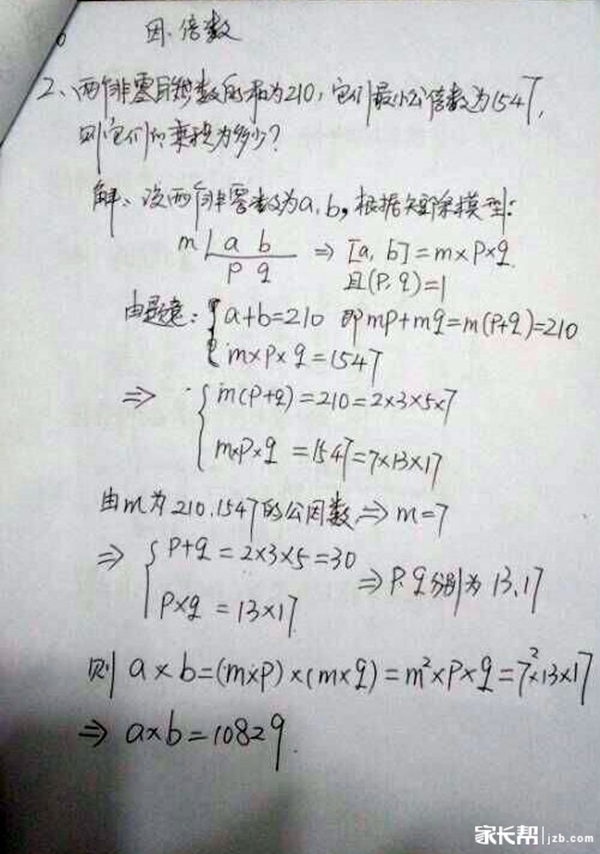 因、倍数
2、两个非零自然数的和为210，它们最小公倍数为1547，
则它们的乘积为多少？
解、设两个非零数为a、b，根据短除模型：
m a b ⇒ [a, b] = m×p×q
p q 且(p, q)=1
由题意： a+b=210 即mp+mq=m(p+q)=210
m×p×q=1547
⇒ m(p+q)=210=2×3×5×7
m×p×q=1547=7×13×17
由m为210、1547的公因数⇒m=7
⇒ p+q=2×3×5=30
⇒p、q分别为13、17
p×q=13×17
则 a×b=(m×p)×(m×q)=m²×p×q=7²×13×17
⇒ a×b=10829.
家长帮 jzb.com